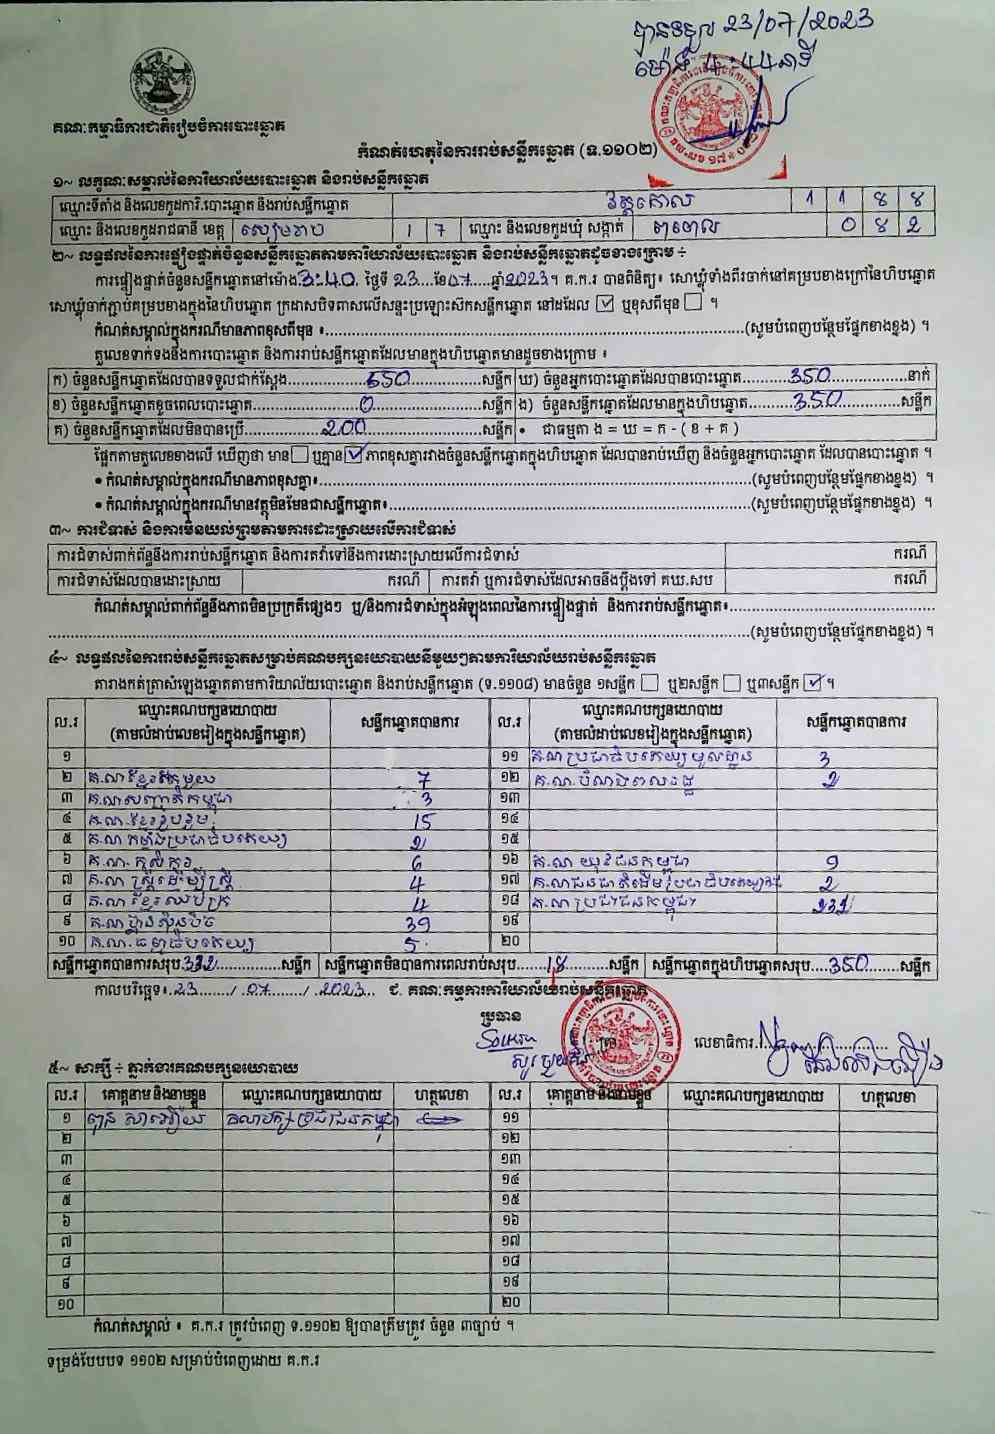 បានទទួល 23/07/2023
ម៉ោង 4:44 នាទី
គណៈកម្មាធិការជាតិរៀបចំការបោះឆ្នោត
កំណត់ហេតុនៃការរាប់សន្លឹកឆ្នោត (ទ.១១០២)
១~ លក្ខណៈសម្គាល់នៃការិយាល័យបោះឆ្នោត និងរាប់សន្លឹកឆ្នោត
ឈ្មោះទីតាំង និងលេខកូដការិ.បោះឆ្នោត និងរាប់សន្លឹកឆ្នោត វត្តគោល 1 1 8 8
ឈ្មោះ និងលេខកូដរាជធានី ខេត្ត សៀមរាប 1 7 ឈ្មោះ និងលេខកូដឃុំ សង្កាត់ 0 8 2
២~ លទ្ធផលនៃការផ្ទៀងផ្ទាត់ចំនួនសន្លឹកឆ្នោតតាមការិយាល័យបោះឆ្នោត និងរាប់សន្លឹកឆ្នោតដូចខាងក្រោម ÷
ការផ្ទៀងផ្ទាត់ចំនួនសន្លឹកឆ្នោតនៅម៉ោង 3:40 ថ្ងៃទី 23 ខែ 07 ឆ្នាំ 2023។ គ.ក.រ បានពិនិត្យ៖ សោឃ្លុំទាំងពីរចាក់នៅគម្របខាងក្រៅនៃហិបឆ្នោត
សោឃ្លុំចាក់ភ្ជាប់គម្របខាងក្នុងនៃហិបឆ្នោត ក្រដាសបិទពាសលើសន្ទះប្រឡោះស៊កសន្លឹកឆ្នោត នៅដដែល ☑ ឬខុសពីមុន ☐ ។
កំណត់សម្គាល់ក្នុងករណីមានភាពខុសពីមុន ៖ (សូមបំពេញបន្ថែមផ្នែកខាងខ្នង) ។
តួលេខទាក់ទងនឹងការបោះឆ្នោត និងការរាប់សន្លឹកឆ្នោតដែលមានក្នុងហិបឆ្នោតមានដូចខាងក្រោម ៖
ក) ចំនួនសន្លឹកឆ្នោតដែលបានទទួលជាក់ស្តែង 550 សន្លឹក ឃ) ចំនួនអ្នកបោះឆ្នោតដែលបានបោះឆ្នោត 350 នាក់
ខ) ចំនួនសន្លឹកឆ្នោតខូចពេលបោះឆ្នោត 0 សន្លឹក ង) ចំនួនសន្លឹកឆ្នោតដែលមានក្នុងហិបឆ្នោត 350 សន្លឹក
គ) ចំនួនសន្លឹកឆ្នោតដែលមិនបានប្រើ 200 សន្លឹក • ជាធម្មតា ង = ឃ = ក - ( ខ + គ )
ផ្អែកតាមតួលេខខាងលើ ឃើញថា មាន ☐ ឬគ្មាន ☑ ភាពខុសគ្នារវាងចំនួនសន្លឹកឆ្នោតក្នុងហិបឆ្នោត ដែលបានរាប់ឃើញ និងចំនួនអ្នកបោះឆ្នោត ដែលបានបោះឆ្នោត ។
• កំណត់សម្គាល់ក្នុងករណីមានភាពខុសគ្នា៖ (សូមបំពេញបន្ថែមផ្នែកខាងខ្នង) ។
• កំណត់សម្គាល់ក្នុងករណីមានវត្ថុមិនមែនជាសន្លឹកឆ្នោត៖ (សូមបំពេញបន្ថែមផ្នែកខាងខ្នង) ។
៣~ ការជំទាស់ និងការមិនយល់ព្រមតាមការដោះស្រាយលើការជំទាស់
ការជំទាស់ពាក់ព័ន្ធនឹងការរាប់សន្លឹកឆ្នោត និងការតវ៉ាទៅនឹងការដោះស្រាយលើការជំទាស់ ករណី
ការជំទាស់ដែលបានដោះស្រាយ ករណី ការតវ៉ា ឬការជំទាស់ដែលអាចនឹងប្តឹងទៅ គឃ.សប ករណី
កំណត់សម្គាល់ពាក់ព័ន្ធនឹងភាពមិនប្រក្រតីផ្សេងៗ ឬ/និងការជំទាស់ក្នុងអំឡុងពេលនៃការផ្ទៀងផ្ទាត់ និងការរាប់សន្លឹកឆ្នោត៖
(សូមបំពេញបន្ថែមផ្នែកខាងខ្នង) ។
៤~ លទ្ធផលនៃការរាប់សន្លឹកឆ្នោតសម្រាប់គណបក្សនយោបាយនីមួយៗតាមការិយាល័យរាប់សន្លឹកឆ្នោត
តារាងកត់ត្រាសំឡេងឆ្នោតតាមការិយាល័យបោះឆ្នោត និងរាប់សន្លឹកឆ្នោត (ទ.១១០៨) មានចំនួន ១សន្លឹក ☐ ឬ២សន្លឹក ☐ ឬ៣សន្លឹក ☑ ។
ល.រ ឈ្មោះគណបក្សនយោបាយ (តាមលំដាប់លេខរៀងក្នុងសន្លឹកឆ្នោត) សន្លឹកឆ្នោតបានការ ល.រ ឈ្មោះគណបក្សនយោបាយ (តាមលំដាប់លេខរៀងក្នុងសន្លឹកឆ្នោត) សន្លឹកឆ្នោតបានការ
១ ១១ គ.ណ ប្រជាធិបតេយ្យមូលដ្ឋាន 3
២ គ.ណ ខ្មែរតែមួយ 7 ១២ គ.ណ. បំណងពលរដ្ឋ 2
៣ គ.ណ សញ្ជាតិកម្ពុជា 3 ១៣
៤ គ.ណ. ខ្មែររួបរួម 15 ១៤
៥ គ.ណ កម្លាំងប្រជាធិបតេយ្យ 2 ១៥
៦ គ.ណ. កសិករ 6 ១៦ គ.ណ យុវជនកម្ពុជា 9
៧ គ.ណ ស្ត្រីដើម្បីស្ត្រី 4 ១៧ គ.ណ ជនជាតិដើមប្រជាធិបតេយ្យកម្ពុជា 2
៨ គ.ណ ខ្មែរឈប់ក្រ 4 ១៨ គ.ណ ប្រជាជនកម្ពុជា 231
៩ គ.ណ ហ្វ៊ុនស៊ិនប៉ិច 39 ១៩
១០ គ.ណ. ធម្មាធិបតេយ្យ 5 ២០
សន្លឹកឆ្នោតបានការសរុប 332 សន្លឹក សន្លឹកឆ្នោតមិនបានការពេលរាប់សរុប 18 សន្លឹក សន្លឹកឆ្នោតក្នុងហិបឆ្នោតសរុប 350 សន្លឹក
កាលបរិច្ឆេទ៖ 23 / 07 / 2023 ជ. គណៈកម្មការការិយាល័យរាប់សន្លឹកឆ្នោត
ប្រធាន
លេខាធិការ
៥~ សាក្សី ÷ ភ្នាក់ងារគណបក្សនយោបាយ
ល.រ គោត្តនាម និងនាមខ្លួន ឈ្មោះគណបក្សនយោបាយ ហត្ថលេខា ល.រ គោត្តនាម និងនាមខ្លួន ឈ្មោះគណបក្សនយោបាយ ហត្ថលេខា
១ គណបក្សប្រជាជនកម្ពុជា ១១
២ ១២
៣ ១៣
៤ ១៤
៥ ១៥
៦ ១៦
៧ ១៧
៨ ១៨
៩ ១៩
១០ ២០
កំណត់សម្គាល់ ៖ គ.ក.រ ត្រូវបំពេញ ទ.១១០២ ឱ្យបានត្រឹមត្រូវ ចំនួន ៣ច្បាប់ ។
ទម្រង់បែបបទ ១១០២ សម្រាប់បំពេញដោយ គ.ក.រ